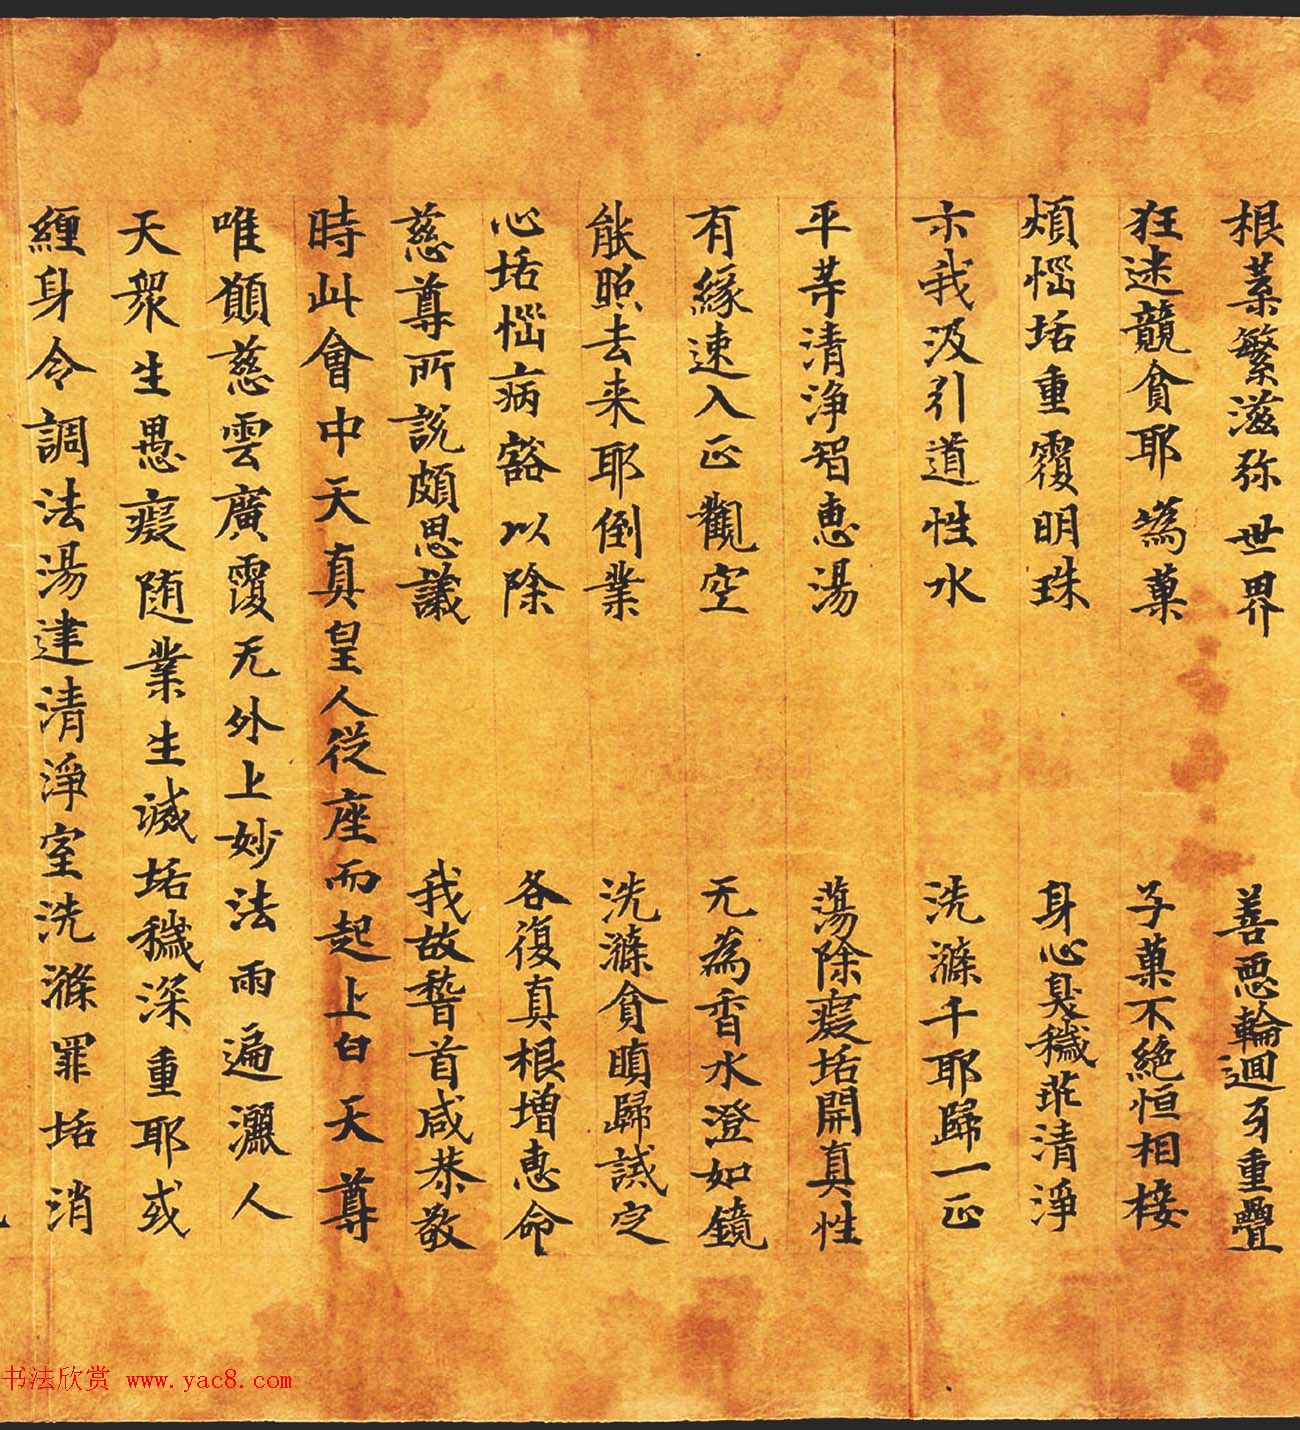 根葉繁滋弥世界　善惡輪迴牙重疊
狂迷競貪耶為菓　子菓不絕恒相接
煩惱垢重覆明珠　身心臭穢非清淨
示我汲引道性水　洗滌千耶歸一正
平等清淨智惠湯　蕩除癡垢開真性
有緣速入正觀空　无為香水澄如鏡
能照去来耶倒業　洗滌貪瞋歸誡定
心垢惱病豁以除　各復真根增惠命
慈尊所說頗思議　我故稽首咸恭敬
時此會中天真皇人從座而起上白天尊
唯願慈雲廣覆无外上妙法雨遍灑人
天衆生愚癡随業生滅垢穢深重耶或
纏身令調法湯建清淨室洗滌罪垢消
书法欣赏 www.yac8.com